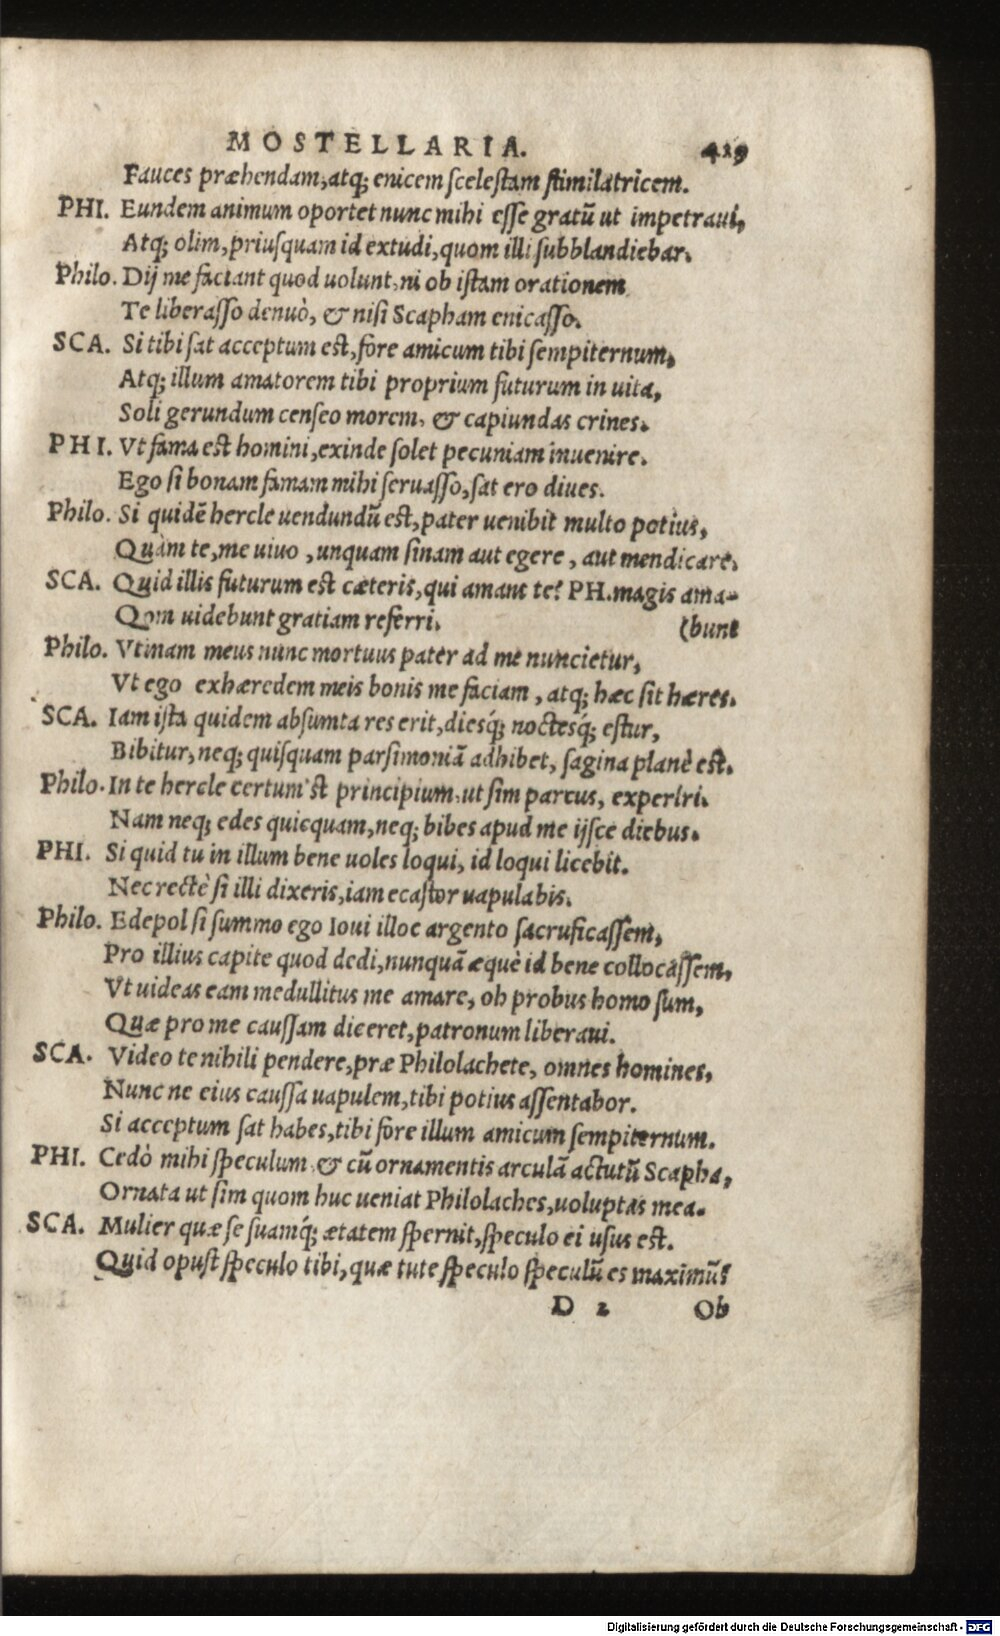 MOSTELLARIA. 419
Fauces præhendam, atq; enicem scelestam stimilatricem.
PHI. Eundem animum oportet nunc mihi esse gratū ut impetraui,
Atq; olim, priusquam id extudi, quom illi subblandiebar.
Philo. Dij me faciant quod uolunt, ni ob istam orationem
Te liberasso denuò, & nisi Scapham enicasso.
SCA. Si tibi sat acceptum est, fore amicum tibi sempiternum,
Atq; illum amatorem tibi proprium futurum in uita,
Soli gerundum censeo morem, & capiundas crines.
PHI. Vt fama est homini, exinde solet pecuniam inuenire.
Ego si bonam famam mihi seruasso, sat ero diues.
Philo. Si quidē hercle uendundū est, pater uenibit multo potius,
Quàm te, me uiuo, unquam sinam aut egere, aut mendicare.
SCA. Quid illis futurum est cæteris, qui amant te? PH. magis ama-
Qom uidebunt gratiam referri. (bunt
Philo. Vtinam meus nunc mortuus pater ad me nuncietur,
Vt ego exhæredem meis bonis me faciam, atq; hæc sit hæres.
SCA. Iam ista quidem absumta res erit, diesq́; noctesq́; estur,
Bibitur, neq; quisquam parsimoniā adhibet, sagina planè est.
Philo. In te hercle certum'st principium, ut sim parcus, experiri.
Nam neq; edes quicquam, neq; bibes apud me ijsce diebus.
PHI. Si quid tu in illum bene uoles loqui, id loqui licebit.
Nec rectè si illi dixeris, iam ecastor uapulabis.
Philo. Edepol si summo ego Ioui illoc argento sacruficassem,
Pro illius capite quod dedi, nunquā æquè id bene collocassem,
Vt uideas eam medullitus me amare, oh probus homo sum,
Quæ pro me caussam diceret, patronum liberaui.
SCA. Video te nihili pendere, præ Philolachete, omnes homines,
Nunc ne eius caussa uapulem, tibi potius assentabor.
Si acceptum sat habes, tibi fore illum amicum sempiternum.
PHI. Cedò mihi speculum & cū ornamentis arculā actutū Scapha,
Ornata ut sim quom huc ueniat Philolaches, uoluptas mea.
SCA. Mulier quæ se suamq́; ætatem spernit, speculo ei usus est.
Quid opust speculo tibi, quæ tute speculo speculū es maximū?
D 2 Ob
Digitalisierung gefördert durch die Deutsche Forschungsgemeinschaft - DFG